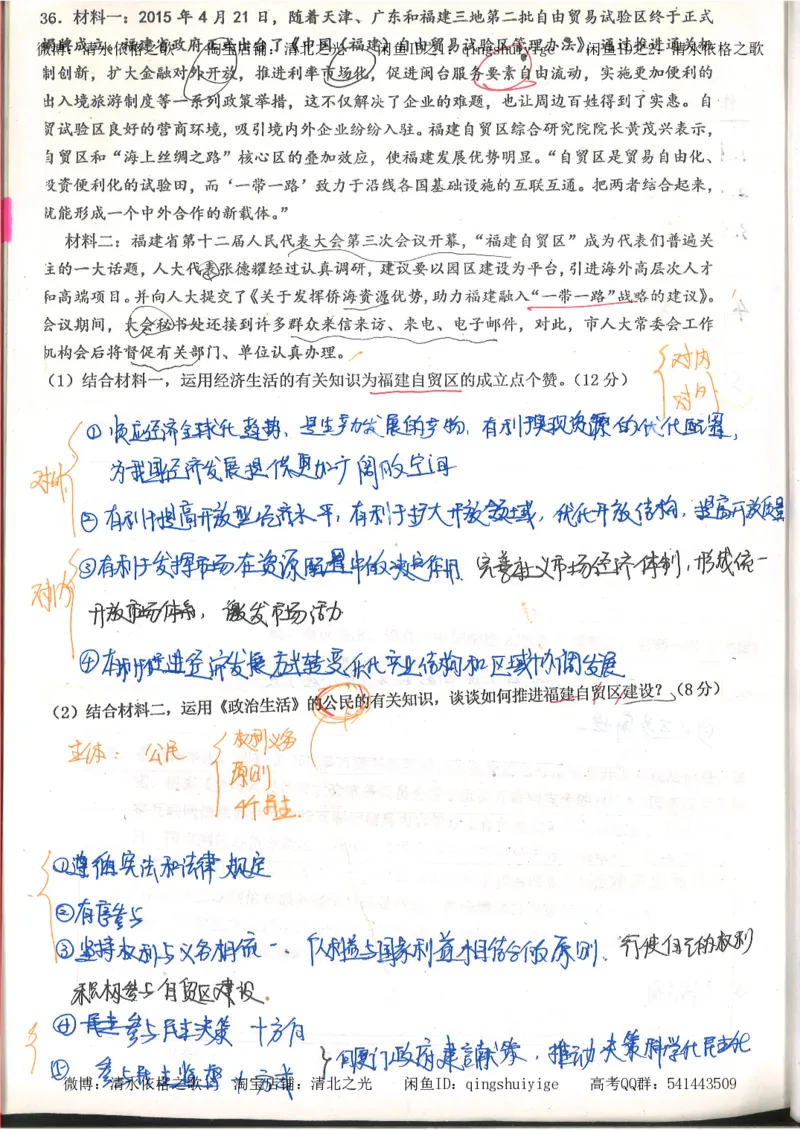 36. 材料一：2015 年 4 月 21 日，随着天津、广东和福建三地第二批自由贸易试验区终于正式
揭牌成立。福建省政府正式出台了《中国（福建）自由贸易试验区管理办法》，通过推进通关机
微博：清水依格之歌 淘宝店铺：清北之光 闲鱼ID之1：qingshuiyige 闲鱼ID之2：清水依格之歌
制创新，扩大金融对外开放，推进利率市场化，促进闽台服务要素自由流动，实施更加便利的
出入境旅游制度等一系列政策举措，这不仅解决了企业的难题，也让周边百姓得到了实惠。自
贸试验区良好的营商环境，吸引境内外企业纷纷入驻。福建自贸区综合研究院院长黄茂兴表示，
自贸区和“海上丝绸之路”核心区的叠加效应，使福建发展优势明显。“自贸区是贸易自由化、
投资便利化的试验田，而‘一带一路’致力于沿线各国基础设施的互联互通。把两者结合起来，
就能形成一个中外合作的新载体。”
材料二：福建省第十二届人民代表大会第三次会议开幕，“福建自贸区”成为代表们普遍关
注的一大话题，人大代表张德耀经过认真调研，建议要以园区建设为平台，引进海外高层次人才
和高端项目。并向人大提交了《关于发挥侨海资源优势，助力福建融入“一带一路”战略的建议》。
会议期间，大会秘书处还接到许多群众来信来访、来电、电子邮件，对此，市人大常委会工作
机构会后将督促有关部门、单位认真办理。
（1）结合材料一，运用经济生活的有关知识为福建自贸区的成立点个赞。（12 分）
对内
对外
①顺应经济全球化趋势，是生产力发展的产物，有利于实现资源的优化配置，
为我国经济发展提供更加广阔的空间
对外
②有利于提高开放型经济水平，有利于扩大开放领域，优化开放结构，提高开放质量
③有利于发挥市场在资源配置中的决定作用 完善社义市场经济体制，形成统一
对内
开放市场体系，激发市场活力
④有利于促进经济发展方式转变 优化产业结构和区域协调发展
（2）结合材料二，运用《政治生活》的公民的有关知识，谈谈如何推进福建自贸区建设？（8 分）
主体：公民
权利义务
原则
4个民主.
①遵循宪法和法律规定
②有序参与
③坚持权利与义务相统一、个人利益与国家利益相结合的原则、行使自己的权利
积极参与自贸区建设.
④参与民主决策 十方式
⑤参与民主监督 十方式
向厦门政府建言献策，推动决策科学化民主化
微博：清水依格之歌 淘宝店铺：清北之光 闲鱼ID：qingshuiyige 高考QQ群：541443509